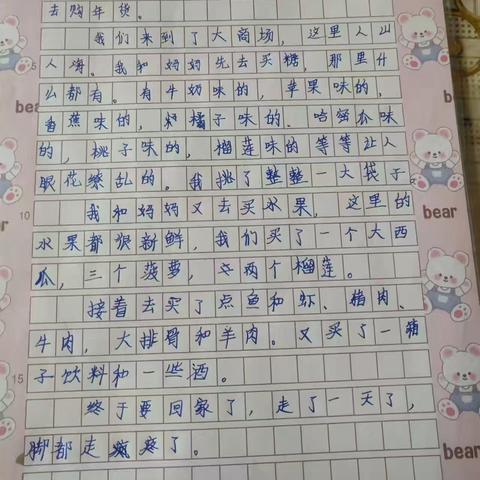 去购年货。
我们来到了大商场，这里人山
人海。我和妈妈先去买糖，那里什
么都有。有牛奶味的，苹果味的，
香蕉味的，橘子味的、哈密瓜味
的，桃子味的，榴莲味的等等让人
眼花缭乱的。我挑了整整一大袋子。
我和妈妈又去买水果，这里的
水果都很新鲜，我们买了一个大西
瓜，三个菠萝，两个榴莲。
接着去买了点鱼和虾、猪肉、
牛肉，大排骨和羊肉。又买了一箱
子饮料和一些酒。
终于要回家了，走了一天了，
脚都走疼了。
10
15
bear
bear
bear
bear
bear